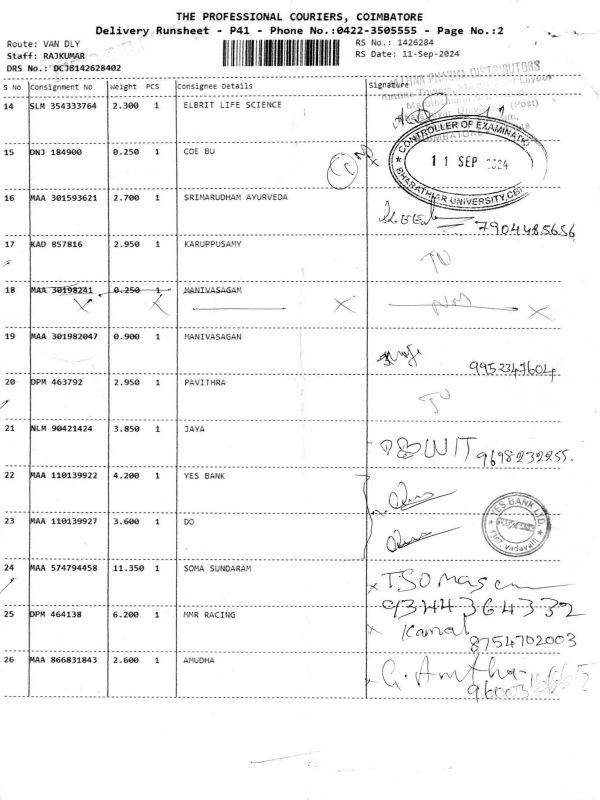 THE PROFESSIONAL COURIERS, COIMBATORE
Delivery Runsheet - P41 - Phone No.:0422-3505555 - Page No.:2
Route: VAN DLY RS No.: 1426284
Staff: RAJKUMAR RS Date: 11-Sep-2024
DRS No.: DCJB142628402
S No Consignment No Weight PCS Consignee Details Signature
14 SLM 354333764 2.300 1 ELBRIT LIFE SCIENCE
PHARMA DISTRIBUTORS
Layout
(Post)
CONTROLLER OF EXAMINATI
15 DNJ 184900 0.250 1 COE BU
11 SEP 2024
BHARATHIAR UNIVERSITY, CBE
16 MAA 301593621 2.700 1 SRIMARUDHAM AYURVEDA
7904485656
17 KAD 857816 2.950 1 KARUPPUSAMY
18 MAA 30198241 0.250 1 MANIVASAGAM
X X X X
19 MAA 301982047 0.900 1 MANIVASAGAN
9952347604
20 DPM 463792 2.950 1 PAVITHRA
21 NLM 90421424 3.850 1 JAYA
9698232255.
22 MAA 110139922 4.200 1 YES BANK
YES BANK LTD.
23 MAA 110139927 3.600 1 DO
Vadavalli
24 MAA 574794458 11.350 1 SOMA SUNDARAM
9344364332
25 DPM 464138 6.200 1 MMR RACING
Kamal
8754702003
26 MAA 866831843 2.600 1 AMUDHA
G. Amtha